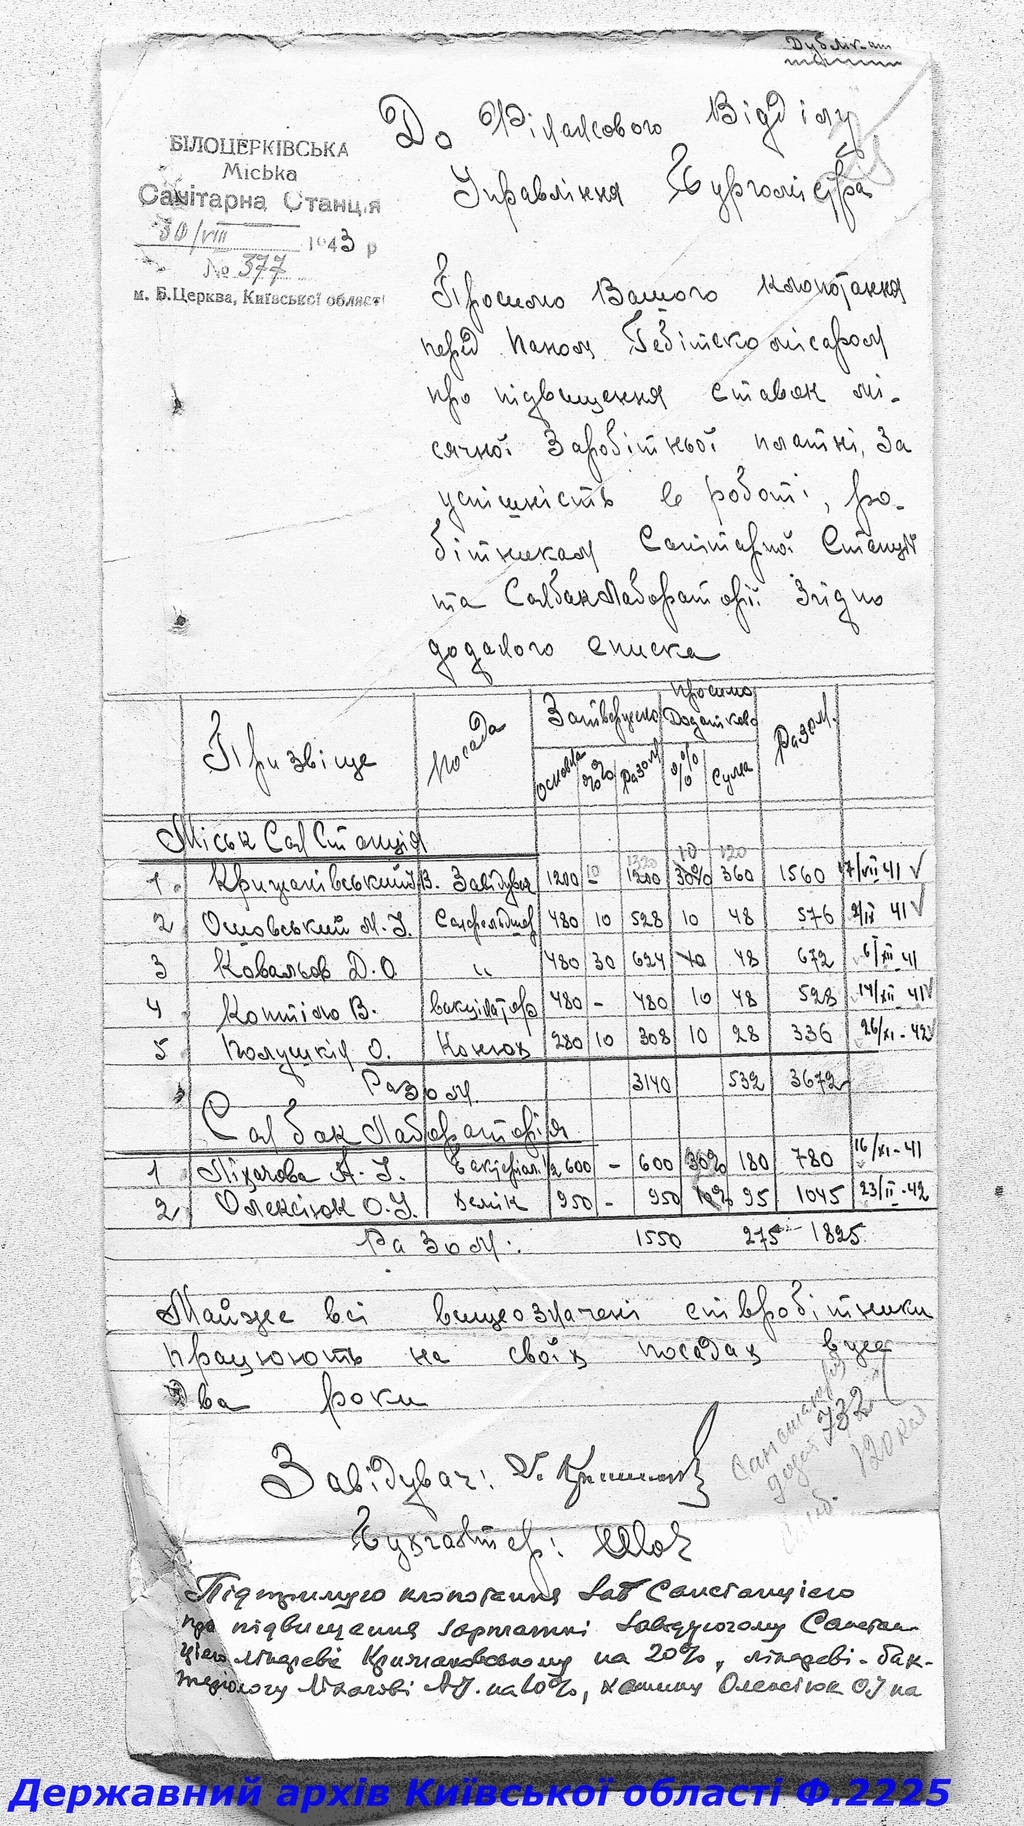 Дублікат
БІЛОЦЕРКІВСЬКА
Міська
Санітарна Станція
30/VIII 1943 р
№ 377
м. Б.Церква, Київської області
До Фінансового Відділу
Управління Бургомістра
Просимо Вашого клопотання
перед Паном Гебітскомісаром
про підвищення ставок мі-
сячної Заробітньої платні, за
успішність в роботі, ро-
бітникам Санітарної Станції
та СанбакЛабораторії Згідно
доданого списка
Призвіще Посада Затверджено Просимо Додатково Разом
Основна %% Разом %% Сума
Міськ СанСтанція
1. Крижанівський В. Завідувач 1200 10 1320 1200 10 30% 120 360 1560 17/VII 41
2 Ошовський М. І. Санфельдшер 480 10 528 10 48 576 2/IX 41
3 Ковальов Д. О. " 480 30 624 10 48 672 6/XII 41
4 В. вакцінатор 480 - 480 10 48 528 14/XII 41
5 О. Конюх 280 10 308 10 28 336 26/XI-42
Разом 3140 532 3672
СанбакЛабораторія
1 Ліхачова А. І. 600 - 600 30% 180 780 16/XI-41
2 Олексіюк О. І. Хемік 950 - 950 10% 95 1045 23/II-42
Разом: 1550 275 1825
Майже всі вищеозначені співробітники
працюють на своїх посадах вже
два роки
732
120
Завідувач:
Бухгалтер:
Підтримую клопотання Зав Санстанцією
про підвищення зарплатні Завідуючому Санстан-
цією лікареві Крижановському на 20%, лікареві-бак-
теріологу Ліхачові А.І. на 10%, хеміку Олексіюк О.І на
Державний архів Київської області Ф.2225